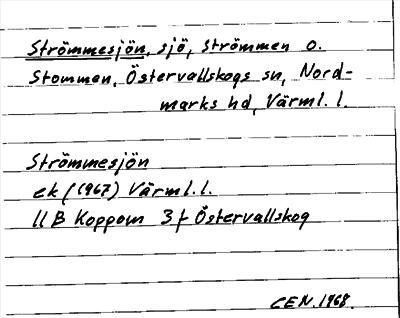 Strömmesjön, sjö, Strömmen o.
Stommen, Östervallskogs sn, Nord-
marks hd, Värml. l.
Strömmesjön
ek (1967) Värml. l.
11 B Koppom 3 f Östervallskog
CEN. 1968.